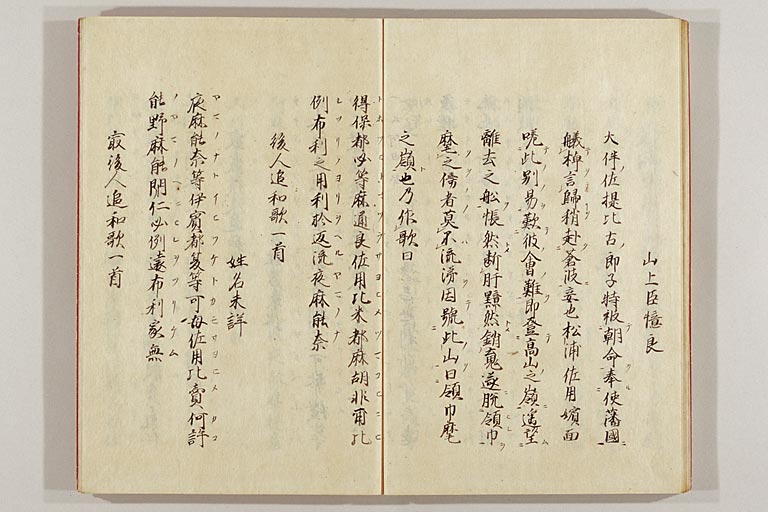 山上臣憶良
大伴佐提比古郎子特被朝命奉使藩國
艤棹言歸稍赴蒼波妾也松浦佐用嬪面
嗟此別易歎彼會難即登高山之嶺遥望
離去之船悵然断肝黯然銷魂遂脱領巾
麾之傍者莫不流涕因號此山曰領巾麾
之嶺也乃作歌曰
得保都必等麻通良佐用比米都麻胡非爾比
例布利之用利於返流夜麻能奈
後人追和歌一首
姓名未詳
夜麻能奈等伊賓都夏等可母佐用比賣何許
能野麻能閇仁必例遠布利家無
最後人追和歌一首